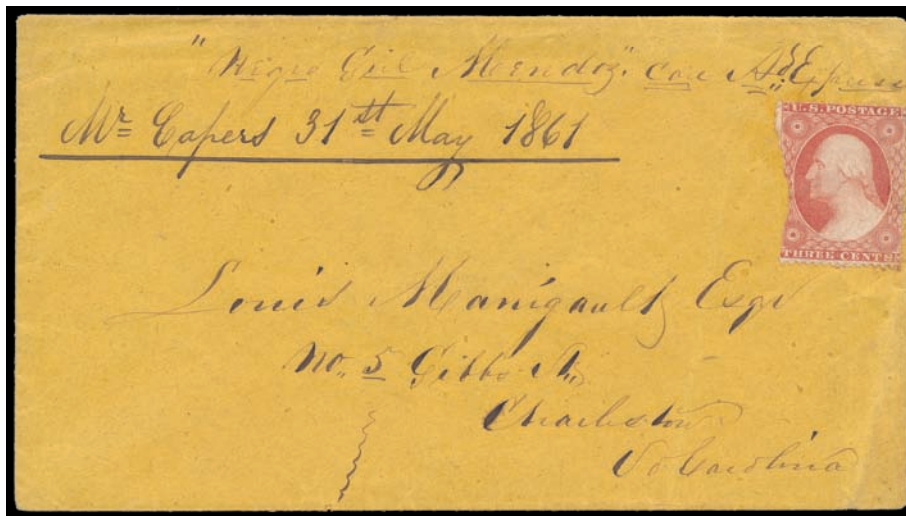 "Negro Girl Mendoza" con Ads Express
Mr Capers 31st May 1861
U.S. POSTAGE
THREE CENTS
Louis Manigault Esqr
No. 5 Gibbs St
Charleston
So Carolina